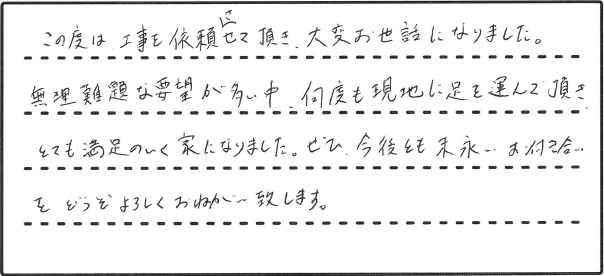 この度は、工事を依頼させて頂き、大変お世話になりました。
無理難題な要望が多い中、何度も現地に足を運んで頂き
とても満足のいく家になりました。ぜひ、今後とも末永いお付き合い
を どうぞよろしくおねがい致します。